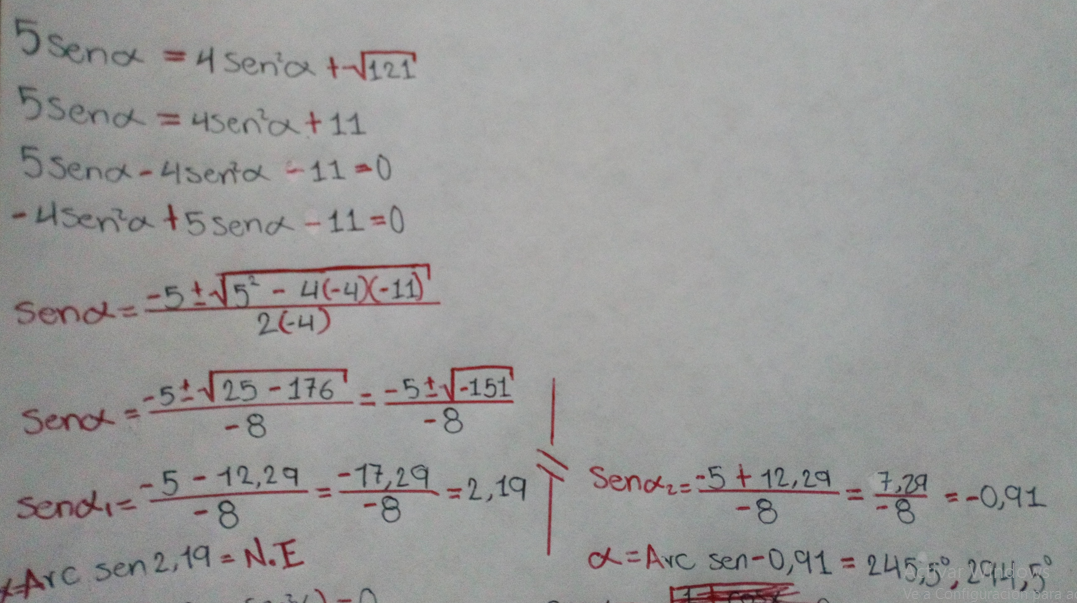 5senα = 4sen²α + √121
5senα = 4sen²α + 11
5senα - 4sen²α - 11 = 0
-4sen²α + 5senα - 11 = 0
senα = (-5 ± √(5² - 4(-4)(-11))) / 2(-4)
senα = (-5 ± √(25 - 176)) / -8 = (-5 ± √(-151)) / -8
senα₁ = (-5 - 12,29) / -8 = -17,29 / -8 = 2,19
senα₂ = (-5 + 12,29) / -8 = 7,29 / -8 = -0,91
α = Arc sen 2,19 = N.E
α = Arc sen -0,91 = 245,5°, 294,5°
Ve a Configuración para a